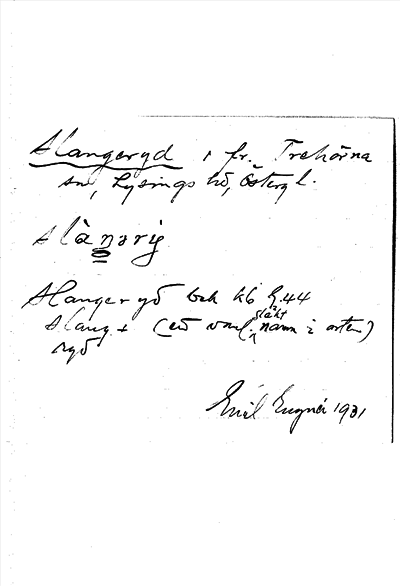 Slangeryd, fr. Trehörna
sn, Lysings hd, Östergl.
slàŋəri
Slangeryd bok kb G.44
Slang + (ett vanl. släkt namn i orten)
ryd
Emil 1931